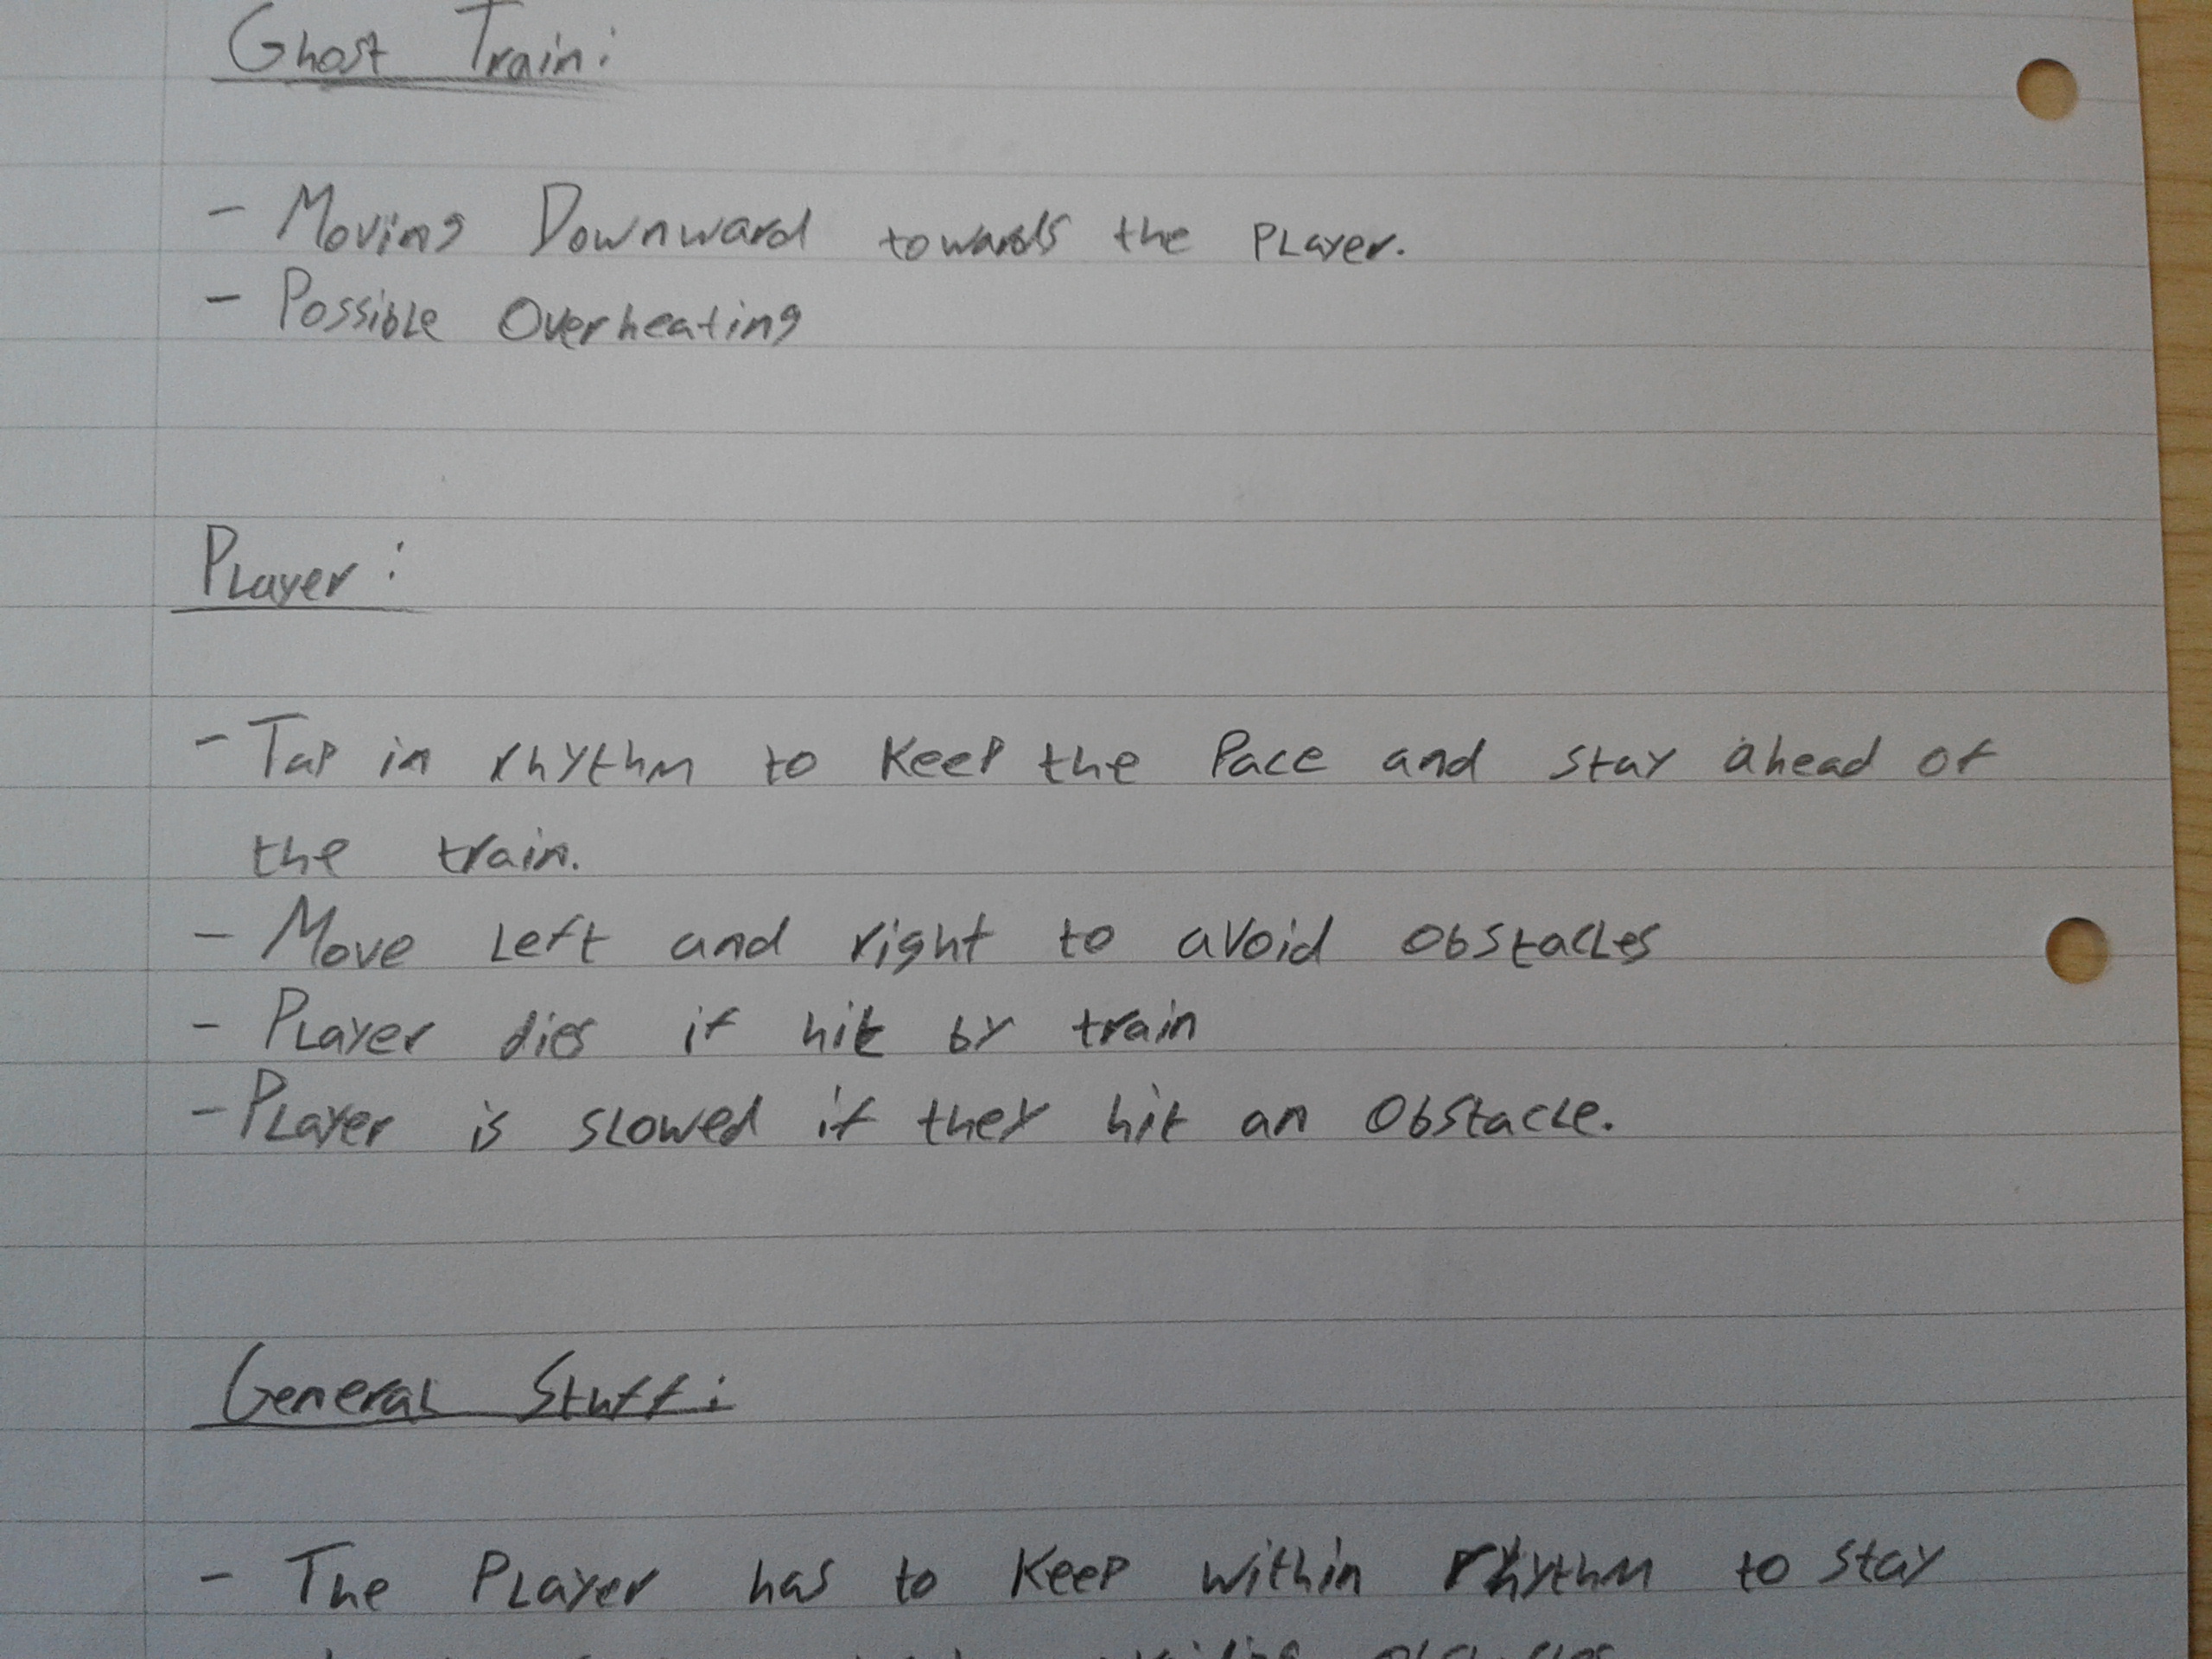 Ghost Train:
- Moving Downward towards the Player.
- Possible Overheating
Player:
- Tap in rhythm to keep the Pace and stay ahead of
the train.
- Move Left and right to avoid obstacles
- Player dies if hit by train
- Player is slowed if they hit an Obstacle.
General Stuff:
- The Player has to Keep within rhythm to stay